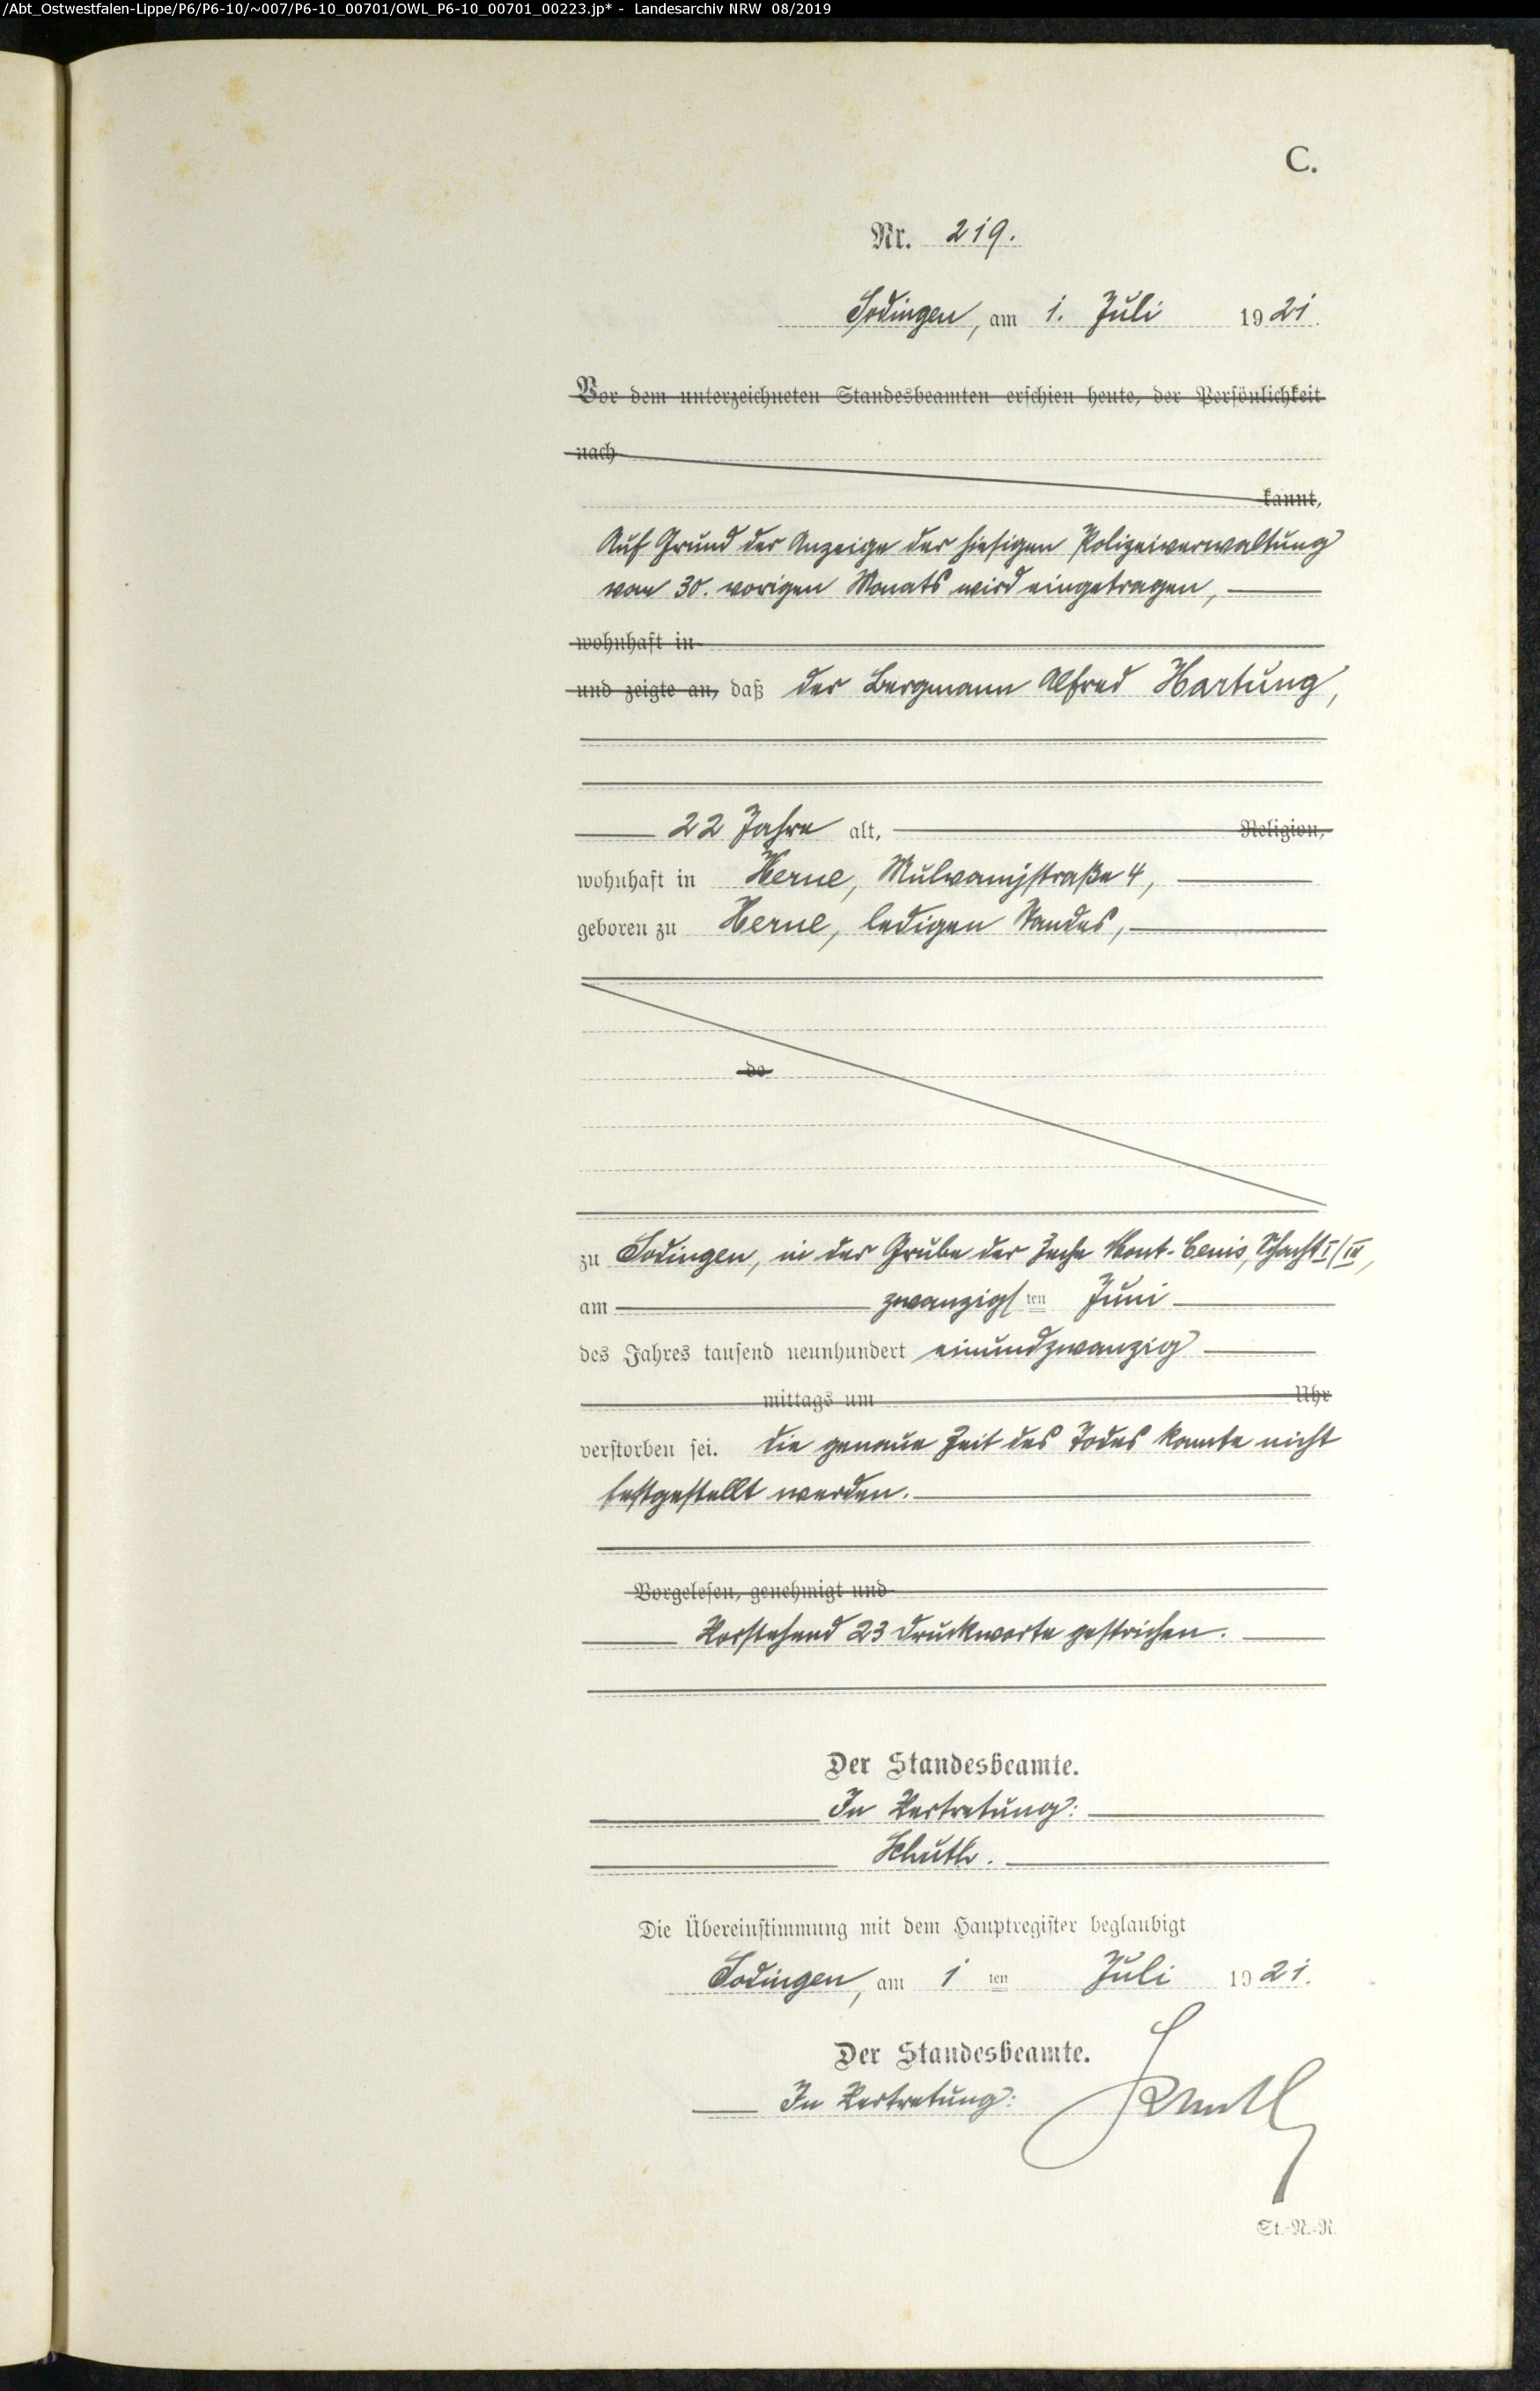 /Abt_Ostwestfalen-Lippe/P6/P6-10/~007/P6-10_00701/OWL_P6-10_00701_00223.jp* - Landesarchiv NRW 08/2019
C.
Nr. 219.
Sodingen, am 1. Juli 1921.
Vor dem unterzeichneten Standesbeamten erschien heute, der Persönlichkeit
nach
kannt,
Auf Grund der Anzeige der hiesigen Polizeiverwaltung
vom 30. vorigen Monats wird eingetragen,
wohnhaft in
und zeigte an, daß der Bergmann Alfred Hartung,
22 Jahre alt, Religion,
wohnhaft in Herne, 4,
geboren zu Herne, ledigen Standes,
de
zu Sodingen, in der Grube der Zeche Mont-Cenis, Schacht I/III,
am zwanzigsten Juni
des Jahres tausend neunhundert einundzwanzig
mittags um Uhr
verstorben sei. Die genaue Zeit des Todes konnte nicht
festgestellt werden.
Vorgelesen, genehmigt und
Vorstehend 23 Druckworte gestrichen.
Der Standesbeamte.
In Vertretung:
Schuth.
Die Übereinstimmung mit dem Hauptregister beglaubigt
Sodingen, am 1 ten Juli 1921.
Der Standesbeamte.
In Vertretung: Schuth
St.-N.-R.